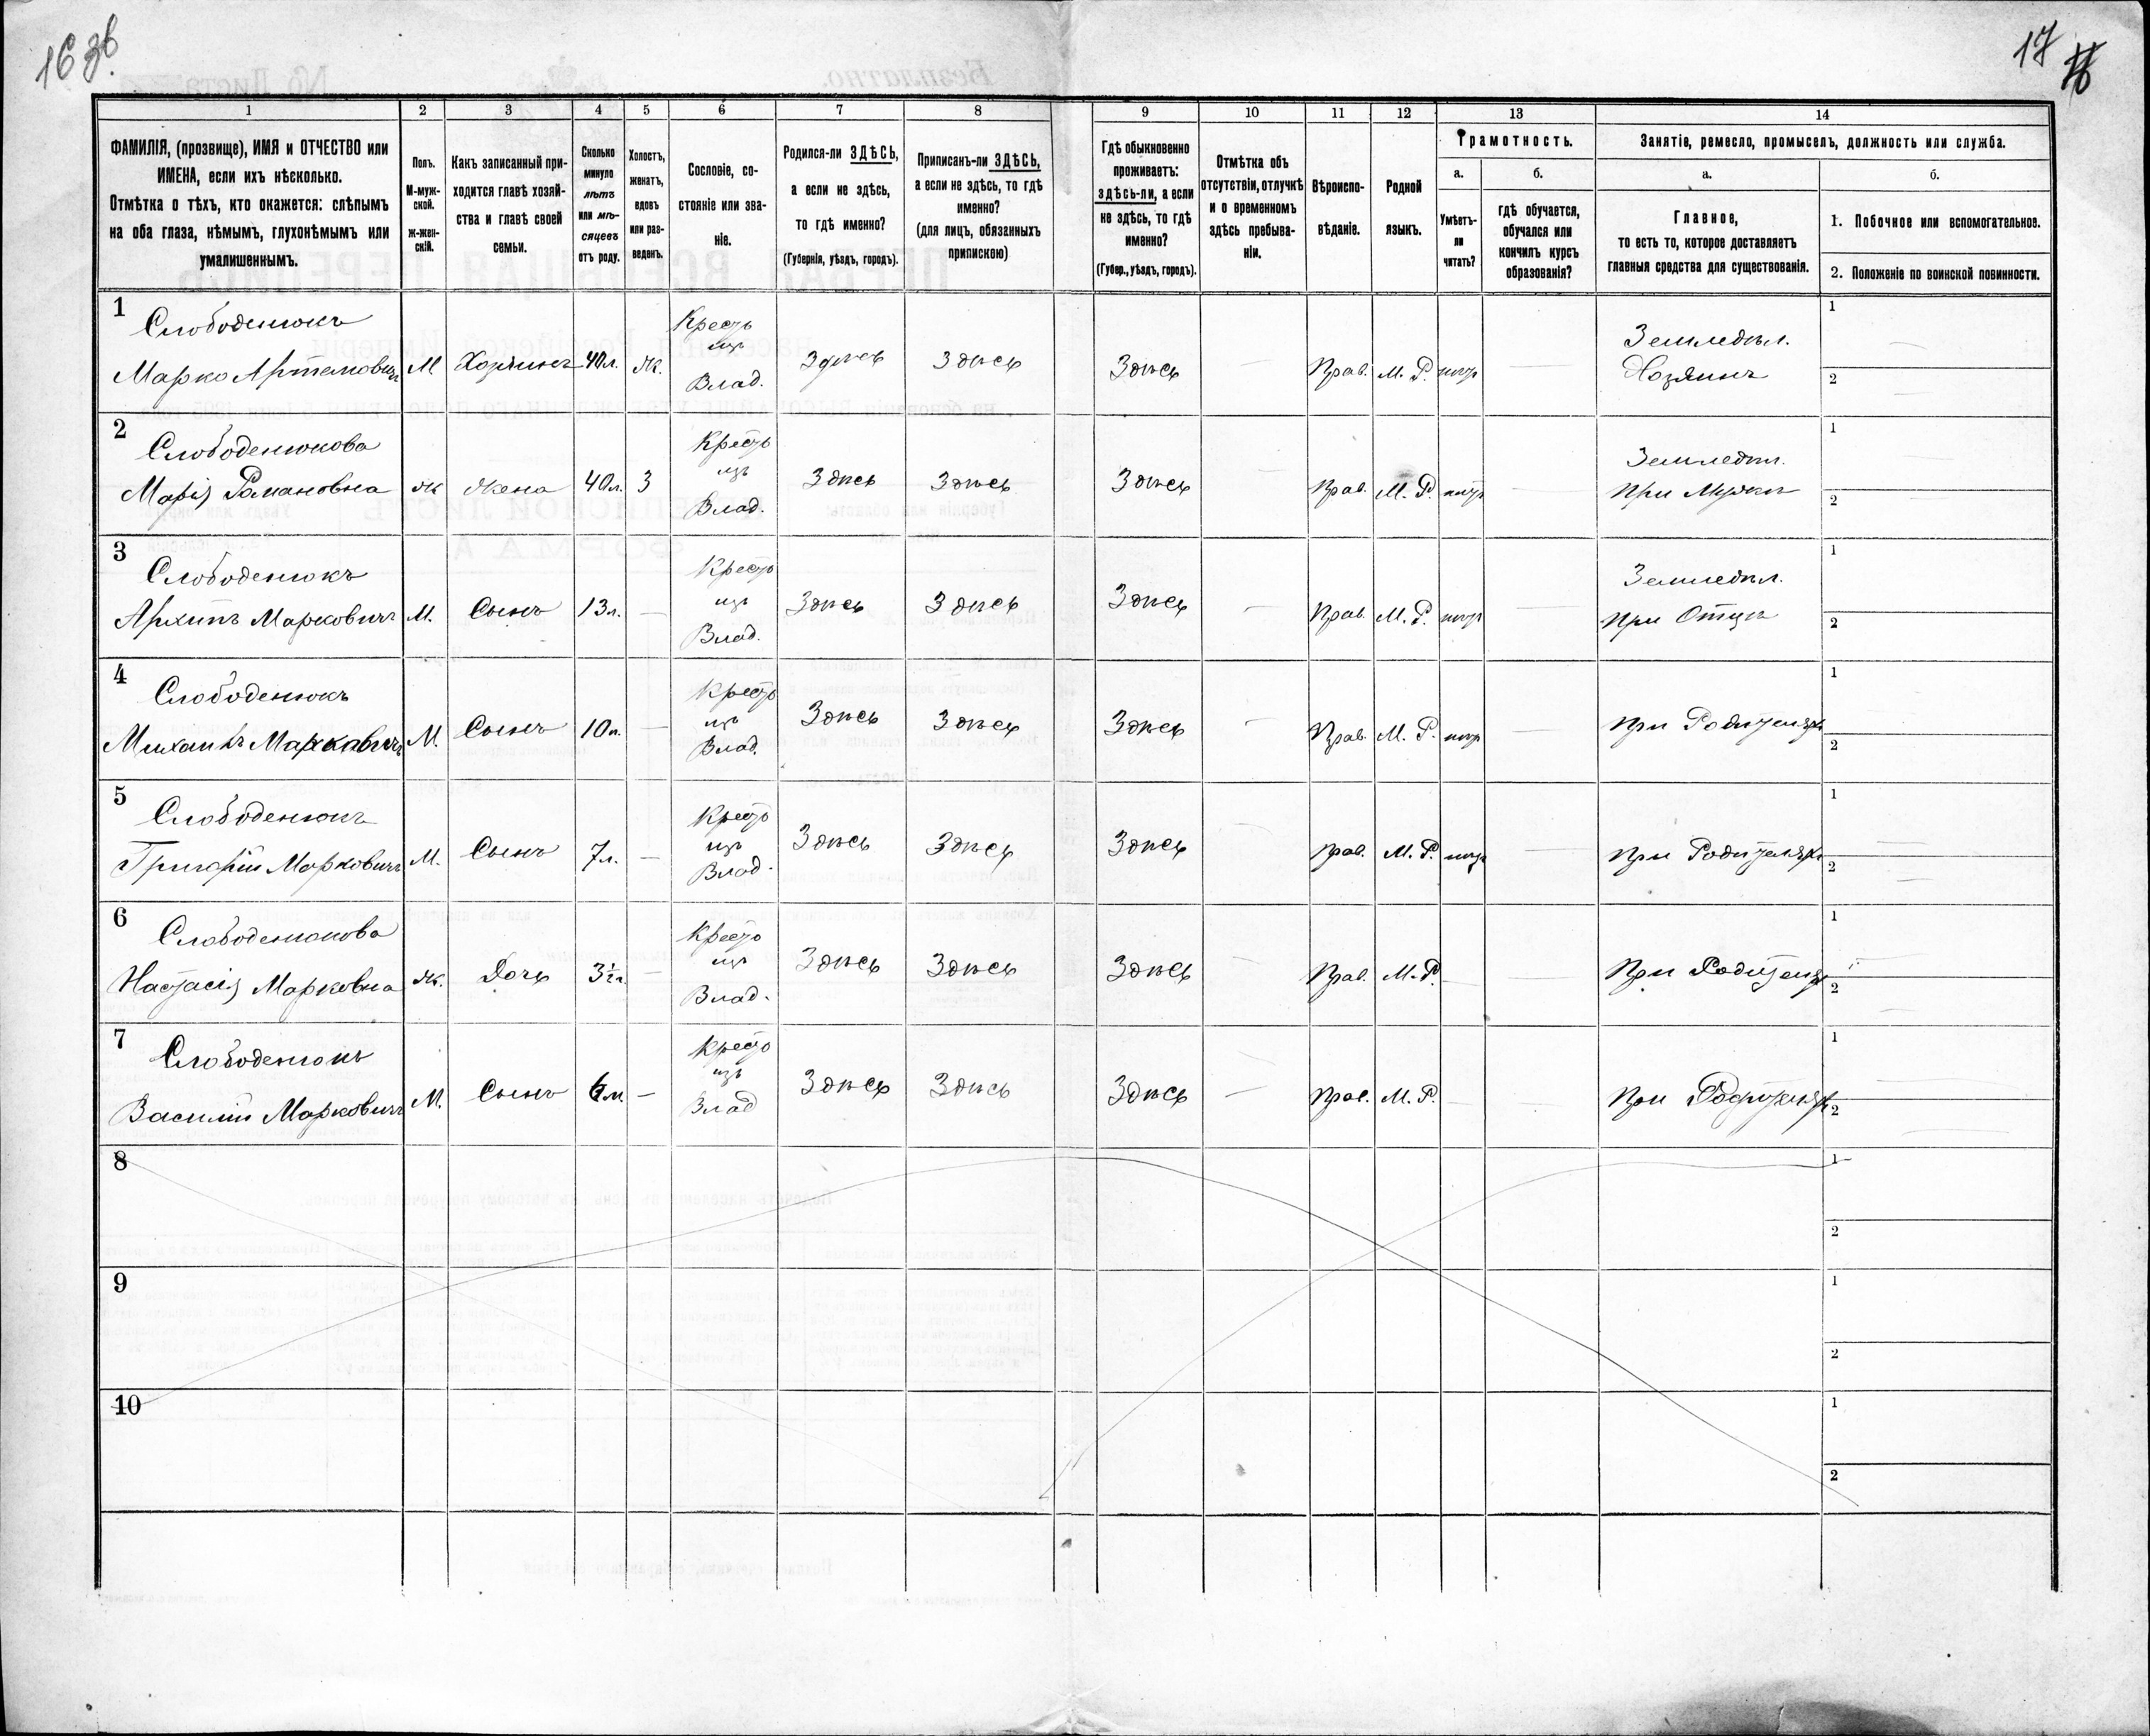 16 зв.
17
1 2 3 4 5 6 7 8 9 10 11 12 13 14
ФАМИЛІЯ, (прозвище), ИМЯ и ОТЧЕСТВО или
ИМЕНА, если ихъ нѣсколько.
Отмѣтка о тѣхъ, кто окажется: слѣпымъ
на оба глаза, нѣмымъ, глухонѣмымъ или
умалишеннымъ.
Полъ.
М-муж-
ской.
ж-жен-
скій.
Какъ записанный при-
ходится главѣ хозяй-
ства и главѣ своей
семьи.
Сколько
минуло
лѣтъ
или мѣ-
сяцевъ
отъ роду.
Холостъ,
женатъ,
вдовъ
или раз-
веденъ.
Сословіе, со-
стояніе или зва-
ніе.
Родился-ли ЗДѢСЬ,
а если не здѣсь,
то гдѣ именно?
(Губернія, уѣздъ, городъ).
Приписанъ-ли ЗДѢСЬ,
а если не здѣсь, то гдѣ
именно?
(для лицъ, обязанныхъ
припискою)
Гдѣ обыкновенно
проживаетъ:
здѣсь-ли, а если
не здѣсь, то гдѣ
именно?
(Губер., уѣздъ, городъ).
Отмѣтка объ
отсутствіи, отлучкѣ
и о временномъ
здѣсь пребыва-
ніи.
Вѣроиспо-
вѣданіе.
Родной
языкъ.
Грамотность.
а.
Умѣетъ-
ли
читать?
б.
гдѣ обучается,
обучался или
кончилъ курсъ
образованія?
Занятіе, ремесло, промыселъ, должность или служба.
а.
Главное,
то есть то, которое доставляетъ
главныя средства для существованія.
б.
1. Побочное или вспомогательное.
2. Положеніе по воинской повинности.
1
Слободенюкъ
Марко Артемовичъ М Хозяинъ 40л. ж. Крестъ изъ Влад. Здѣсь Здѣсь Здѣсь — Прав. М. Р. нѣтъ — Земледѣл. Хозяинъ
1
2
2
Слободенюкова
Марія Романовна ж Жена 40л. З Крестъ изъ Влад. Здѣсь Здѣсь Здѣсь — Прав. М. Р. нѣтъ — Земледѣл. При Мужѣ
1
2
3
Слободенюкъ
Архипъ Марковичъ М. Сынъ 13л. — Крестъ изъ Влад. Здѣсь Здѣсь Здѣсь — Прав. М. Р. нѣтъ — Земледѣл. При Отцѣ
1
2
4
Слободенюкъ
Михаилъ Марковичъ М. Сынъ 10л. — Крестъ изъ Влад. Здѣсь Здѣсь Здѣсь — Прав. М. Р. нѣтъ — При Родителяхъ
1
2
5
Слободенюкъ
Григорій Марковичъ М. Сынъ 7л. — Крестъ изъ Влад. Здѣсь Здѣсь Здѣсь — Прав. М. Р. нѣтъ — При Родителяхъ
1
2
6
Слободенюкова
Настасія Марковна ж. Дочь 3½г. — Крестъ изъ Влад. Здѣсь Здѣсь Здѣсь — Прав. М. Р. — — При Родителяхъ
1
2
7
Слободенюкъ
Василій Марковичъ М. Сынъ — Крестъ изъ Влад Здѣсь Здѣсь Здѣсь — Прав. М. Р. — — При Родителяхъ
1
2
8
1
2
9
1
2
10
1
2